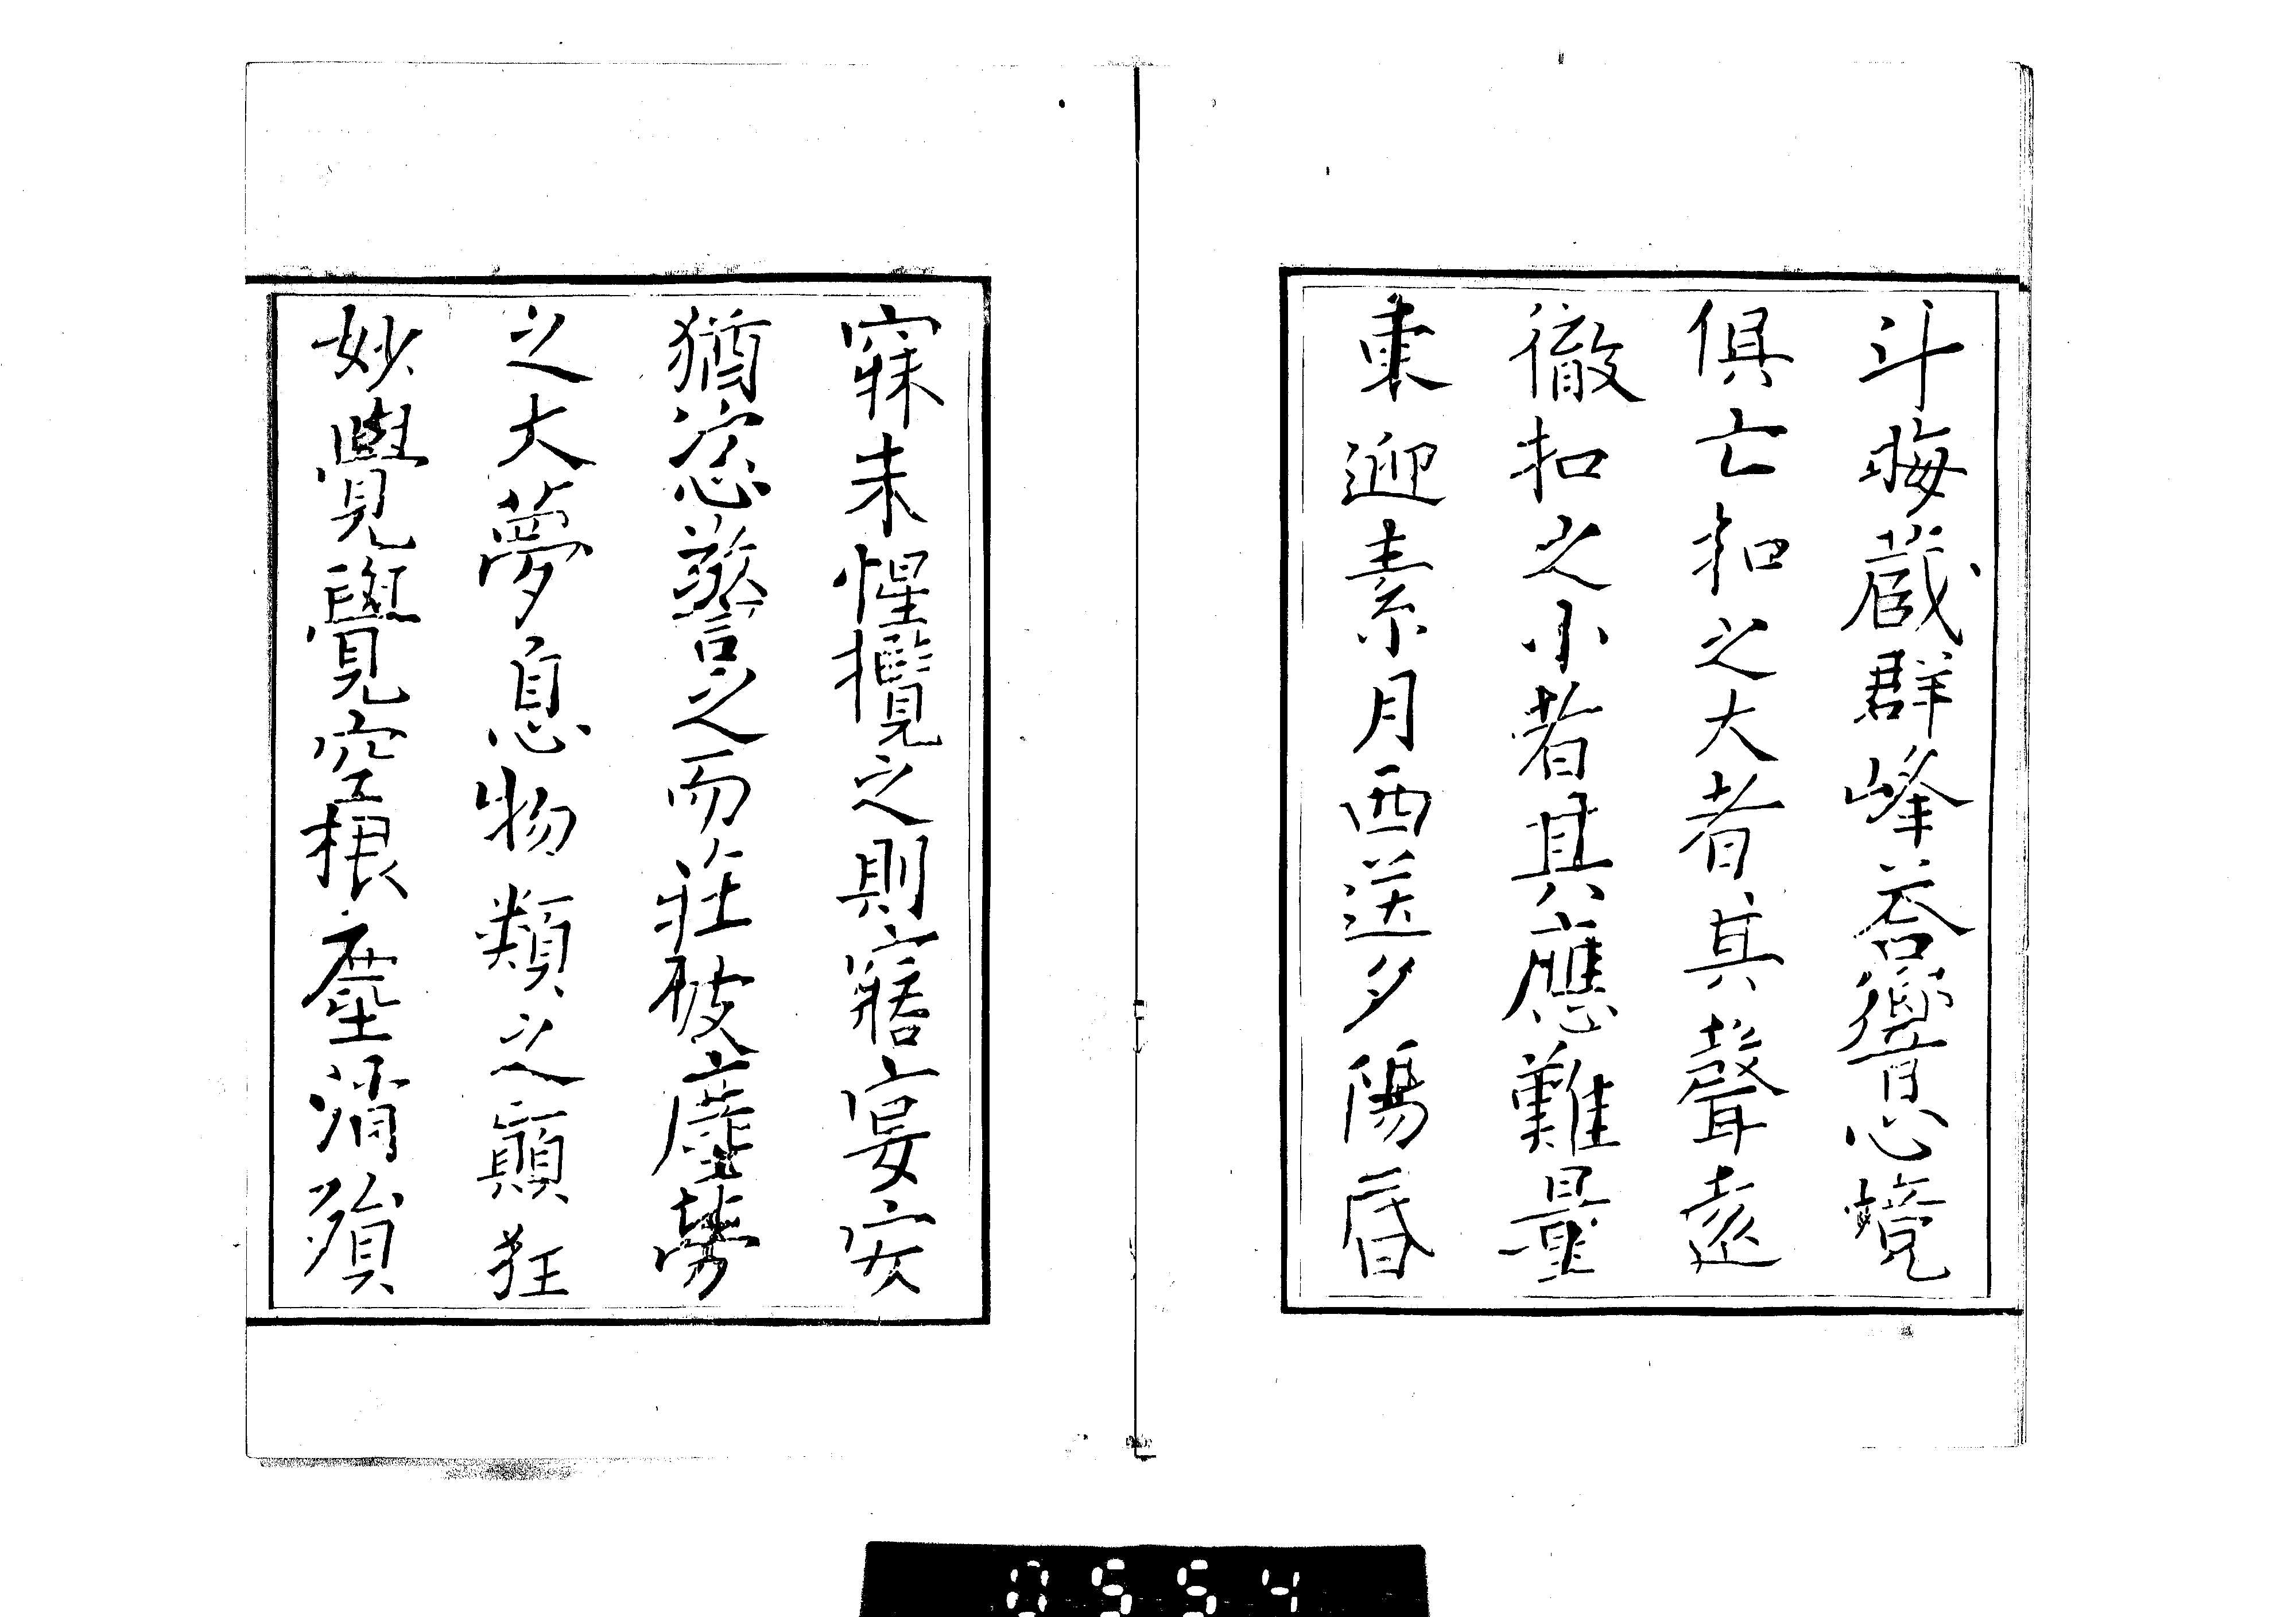 斗晦蔵群峰荅響心境
俱亡扣之大者其聲遠
徹扣之小者其應難量
東迎素月西送夕陽昏
寐未惺攪之則寤宴安
猶恣警之而莊破塵勞
之大夢息物類之顛狂
妙覺覺空根塵消殞
0554